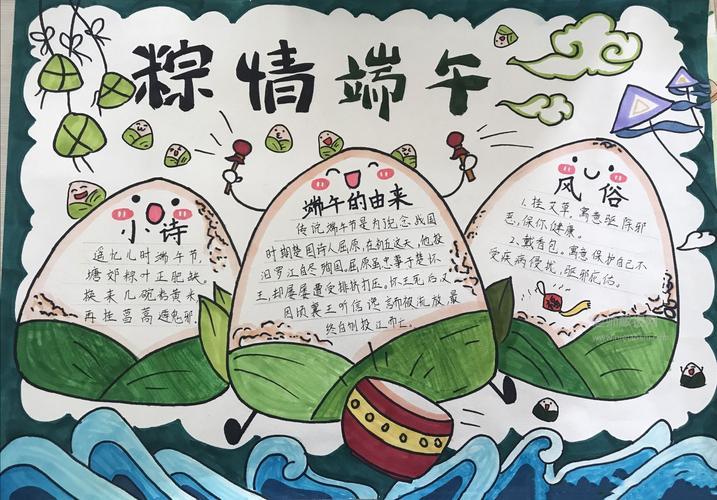 粽情端午
小诗
遥忆儿时端午节,
塘郊粽叶正肥缺.
换来几碗黄米,
再挂菖蒿避鬼邪.
端午的由来
传说端午节是为纪念战国
时期楚国诗人屈原,在初五这天,他投
汨罗江自尽殉国。屈原虽忠事于楚怀
王,却屡屡遭受排挤打压。怀王死后又
因顷襄王听信谗言而被流放,最
终自刎投江而亡.
风俗
1.挂艾草,寓意驱除邪
恶,保你健康。
2.戴香包,寓意保护自己不
受疾病侵扰,驱邪庇佑.